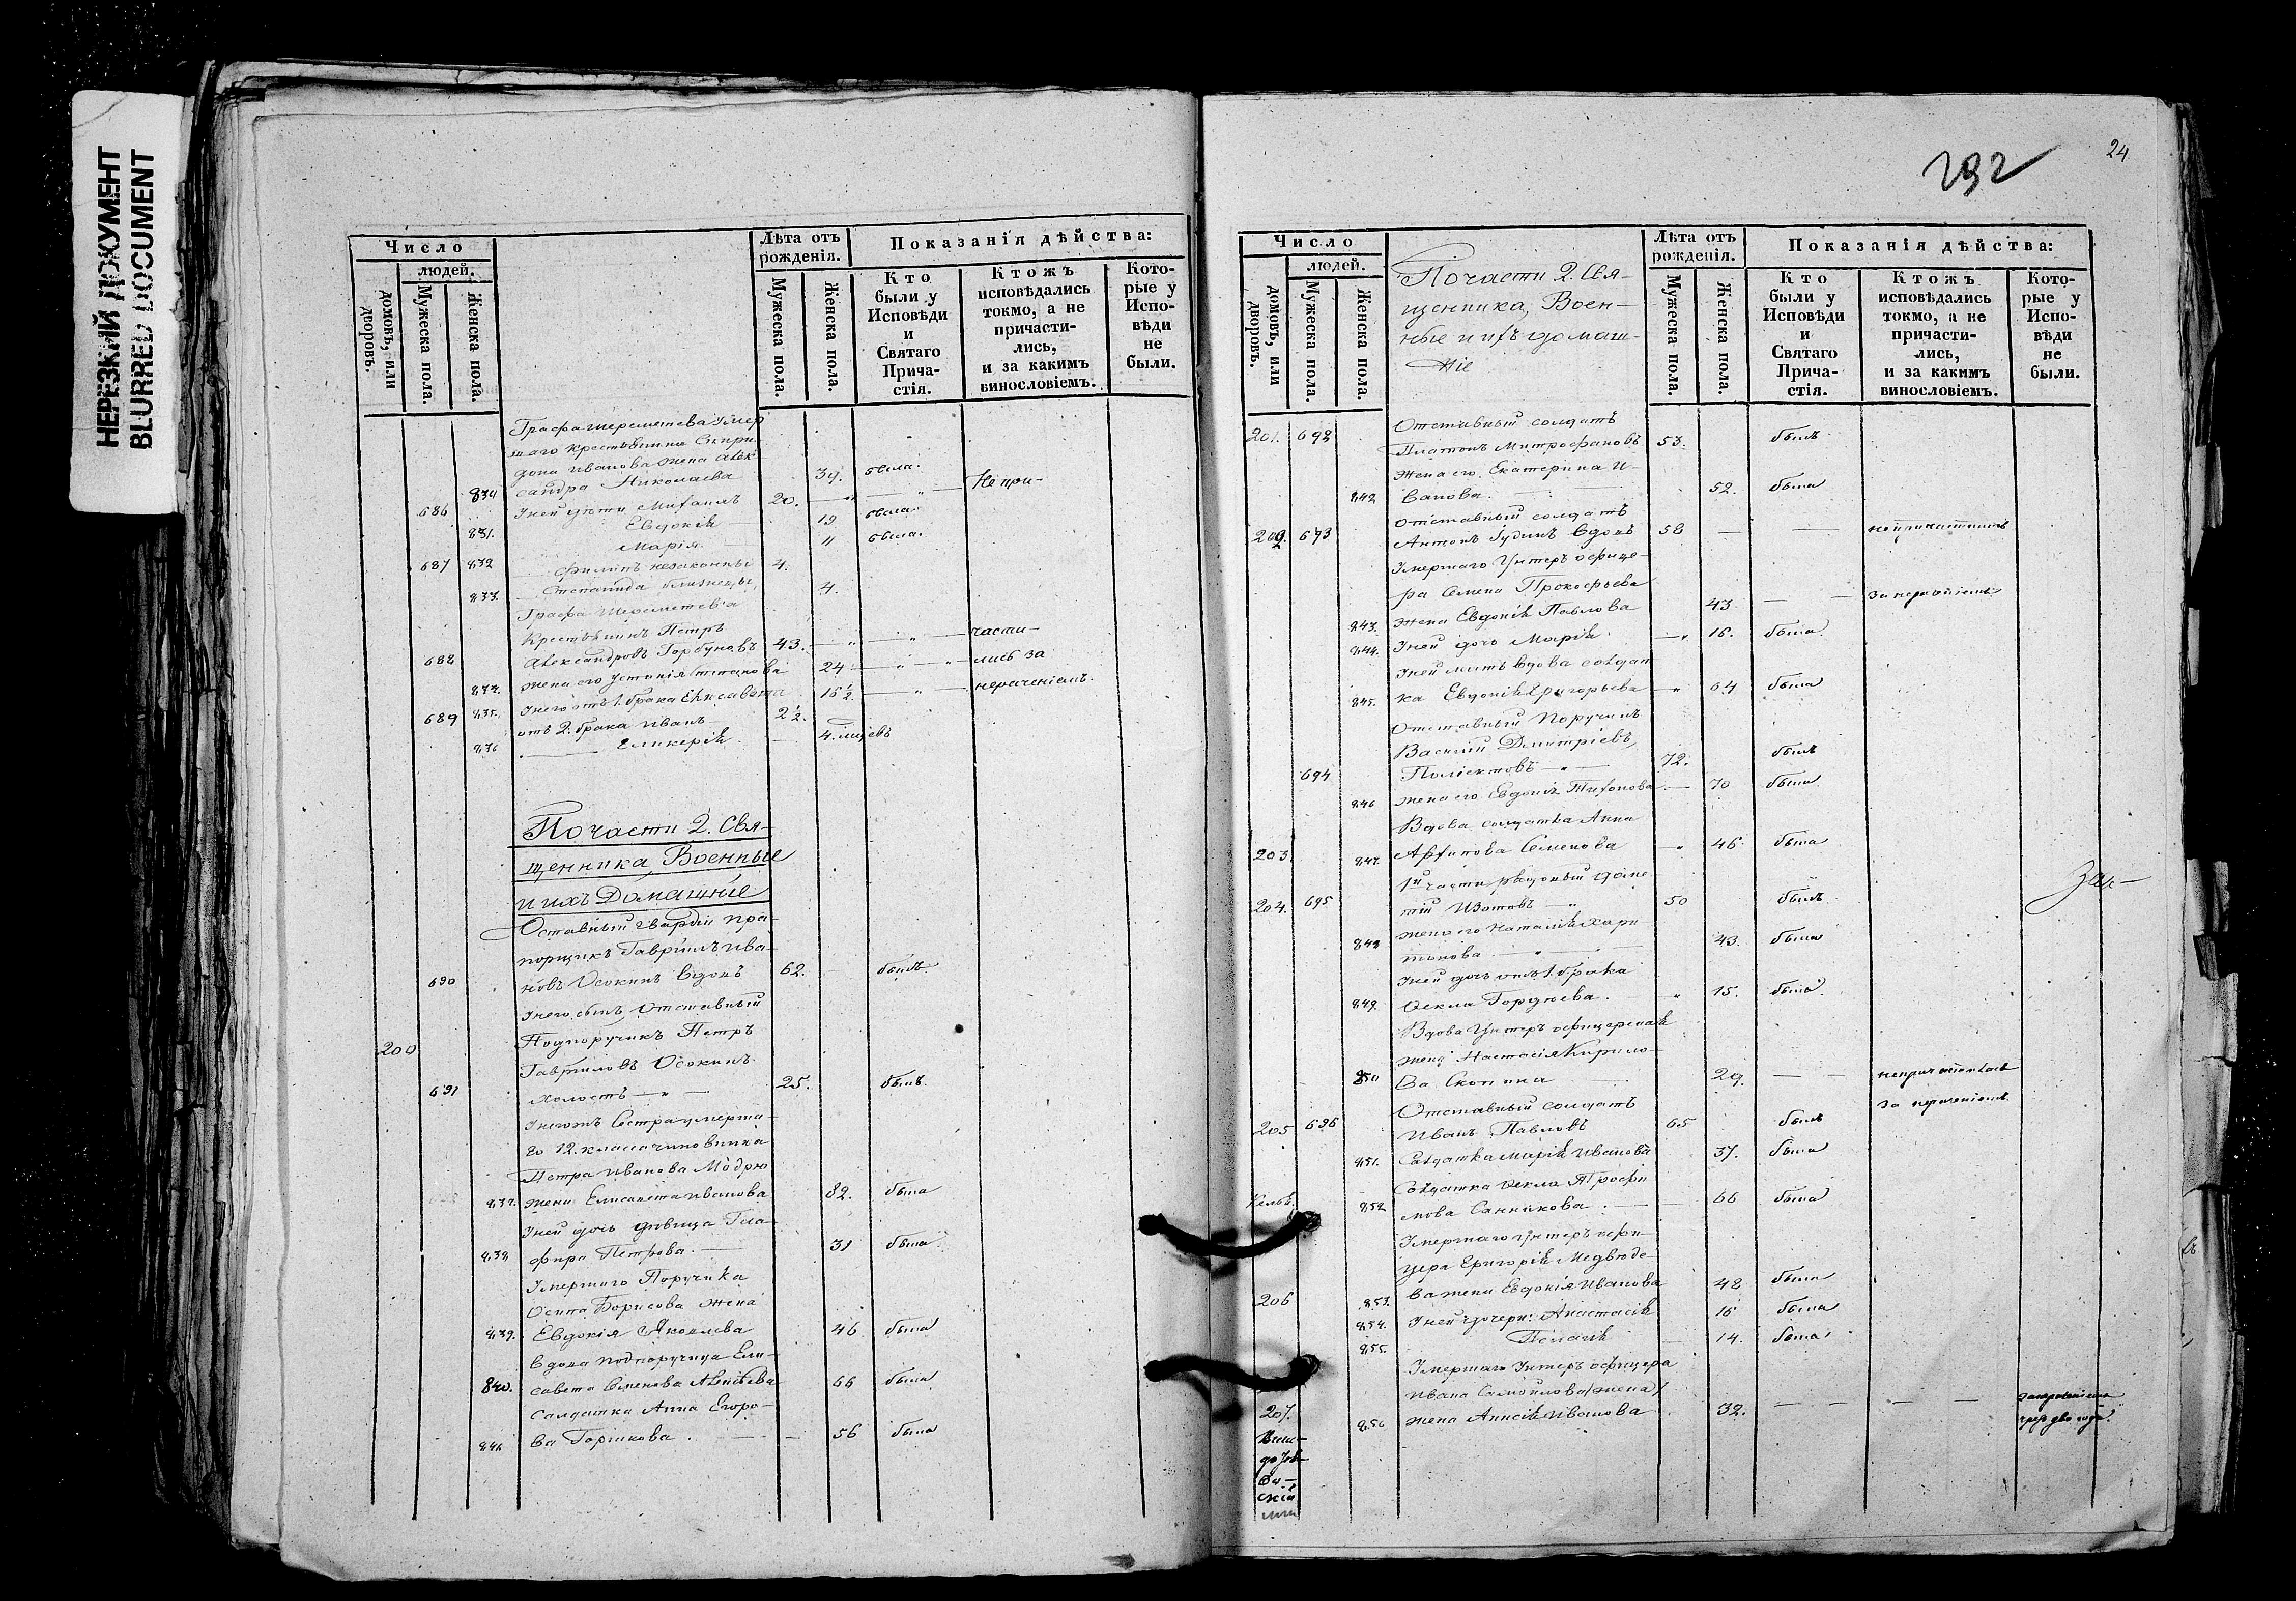 НЕРЕЗКИЙ ДОКУМЕНТ
BLURRED DOCUMENT
Число
людей.
домовъ, или дворовъ.
Мужеска пола.
Женска пола.
Лѣта отъ рожденія.
Мужеска пола.
Женска пола.
Показанія дѣйства:
Кто были у Исповѣди и Святаго Прича-стія.
Ктожъ исповѣдались токмо, а не причасти-лись, и за какимъ винословіемъ.
Кото-рые у Испо-вѣди не были.
Графа Шереметева Умер
шаго крестьянина Спири
дона Иванова жена Алек
830 сандра Николаева 39. была.
686 У ней дѣти Михаилъ 20. Не при-
831. Евдокія 19 была.
Марія 11 была.
687 832 Филипъ незаконны 4.
833. Степанида близнецы 4.
Графа Шереметева
Крестьянинъ Петръ
688 Александровъ Горбуновъ 43. части-
834. Жена его Устинія Степанова 24 лись за
835. У него отъ 1. брака Елисавета 16 ½ нераченіемъ.
689 отъ 2. брака Иванъ 2 ½.
836 Гликерія 4.
По части 2. Свя-
щенника, Военные
и ихъ Домашніе
Отставный Гвардіи пра-
порщикъ Гавріилъ Ива-
690 новъ Осокинъ вдовъ 62. былъ.
У него сынъ Отставный
200 Подпоручикъ Петръ
Гавриловъ Осокинъ
691 холостъ 25. былъ.
Сестра умерша-
го 12. класса чиновника
Петра Иванова
837. жена Елисавета Иванова 82. была
У ней дочь дѣвица Гла-
838 фира Петрова. 31 была
Умершаго Поручика
Осипа Борисова жена
839. Евдокія Яковлева 46 была
Вдова подпоручица Ели-
840. савета Семенова 66 была
Салдатка Анна Егоро-
841 ва Горшкова. 56 была
292
24
Число
людей.
домовъ, или дворовъ.
Мужеска пола.
Женска пола.
По части 2. Свя-
щенника, Воен-
ные и ихъ домаш-
ніе
Лѣта отъ рожденія.
Мужеска пола.
Женска пола.
Показанія дѣйства:
Кто были у Исповѣди и Святаго Прича-стія.
Ктожъ исповѣдались токмо, а не причасти-лись, и за какимъ винословіемъ.
Кото-рые у Испо-вѣди не были.
Отставный солдатъ
201. 692 Платонъ Митрофановъ 53. былъ
Жена его Екатерина И-
842 ванова. 52. была
Отставный солдатъ
202. 693 Антонъ вдовъ 58
Умершаго Унтеръ офице-
ра Семена Прокофьева
843. жена Евдокія Павлова 43. за нераченіемъ
844. У ней дочь Марія. 16. была
У ней мать вдова солдат
845. ка Евдокія Григорьева 64 была
Отставный Поручикъ
Василій Дмитріевъ
694 Поліектовъ 72. былъ
846 Жена его Евдокія Тихонова 70 была
Вдова солдатка Анна
203. 847. Архипова Семенова 46 была
1й части рядовый
204. 695 Изотовъ 50 былъ
Жена его Наталія Хари
848 тонова 43. была
У ней дочь отъ 1. брака
849. Ѳекла Гордѣева. 15. была
Вдова Унтеръ офицерская
жена Настасія Кирило-
850 ва Скопина 29. непричастилась
за нераченіемъ
Отставный солдатъ
205 696 Иванъ Павловъ 65 былъ
851. Солдатка Марія Иванова 37. была
Солдатка Ѳекла Трофи
852 мова Санникова. 66 была
Умершаго Унтеръ офи-
цера Григорія Медвѣде-
206 853. ва жена Евдокія Иванова 48 была
854. У ней дочери: Анастасія 16 была
855. Пелагія 14. была
Умершаго Унтеръ офицера
Ивана Самойлова жена
207. 856 жена Анисія Иванова 32.